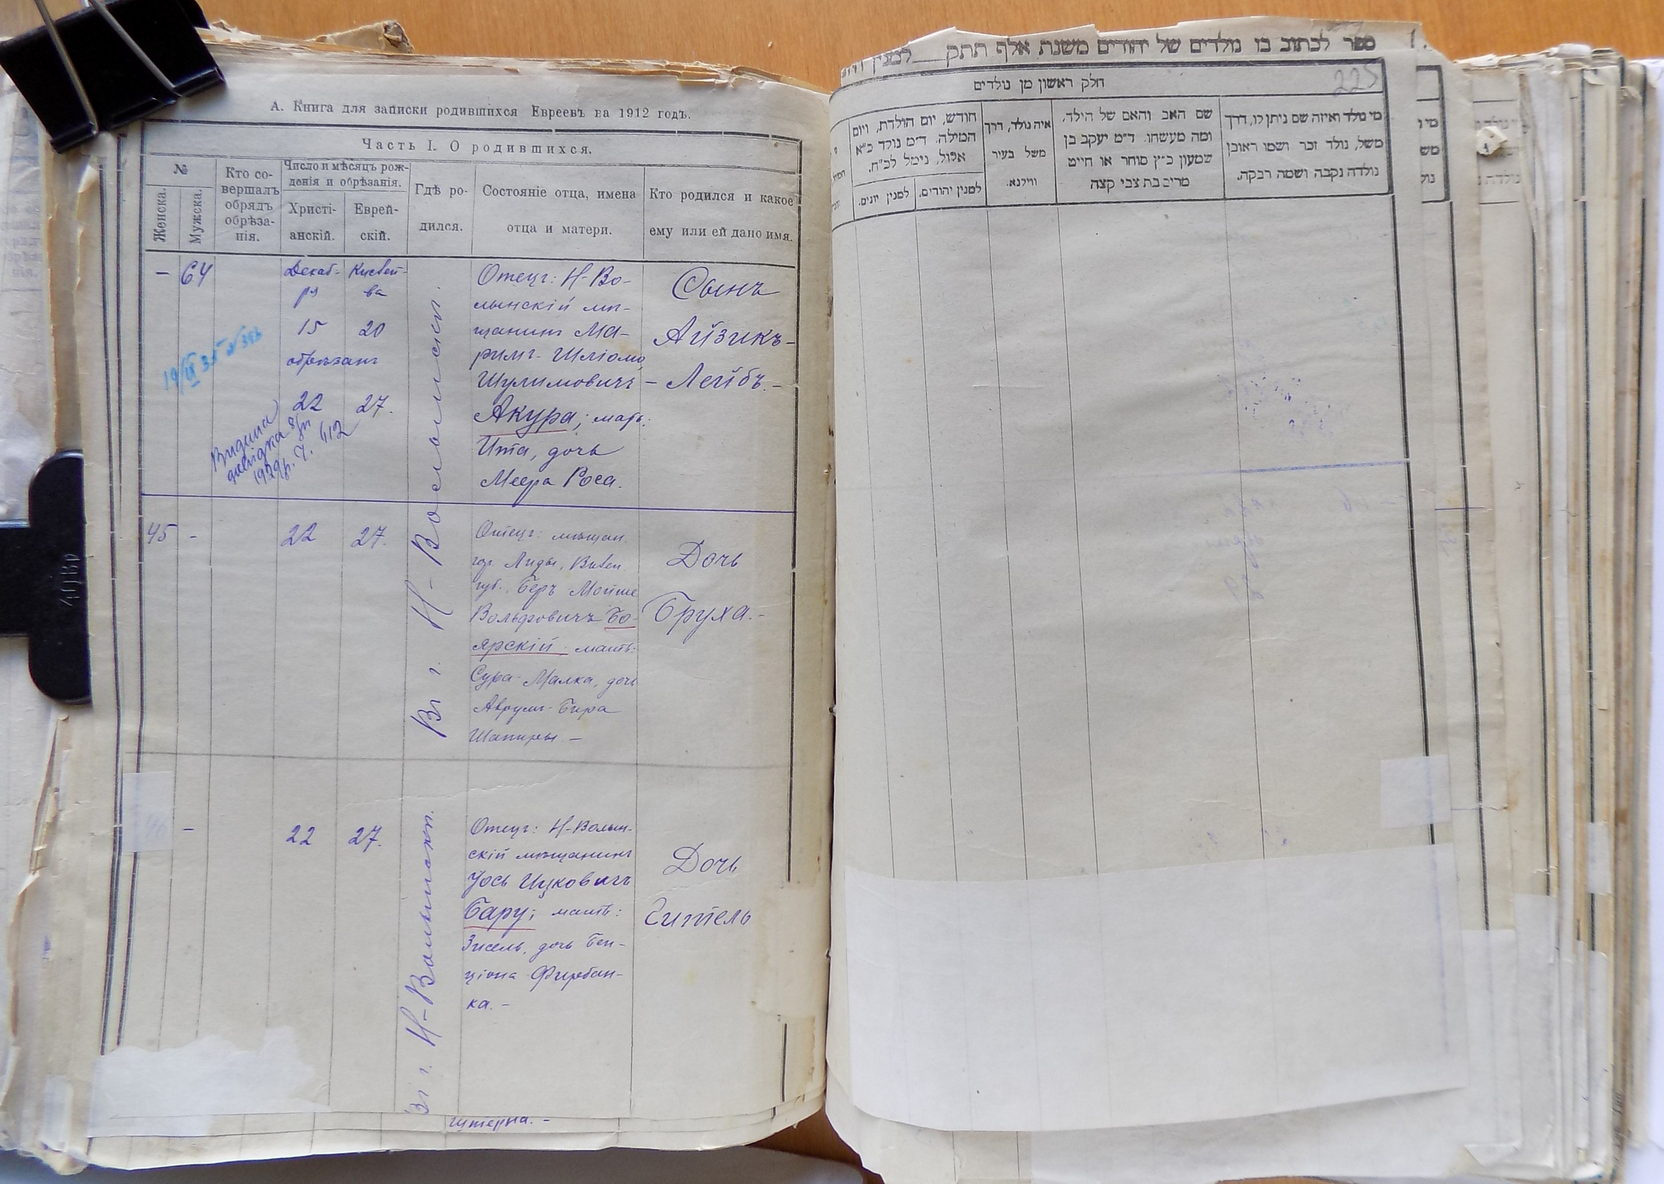 А. Книга для записки родившихся Евреевъ на 1912 годъ.
Часть I. О родившихся.
№
Женска.
Мужска.
Кто со-
вершалъ
обрядъ
обрѣза-
нія.
Число и мѣсяцъ рож-
денія и обрѣзанія.
Христі-
анскій.
Еврей-
скій.
Гдѣ ро-
дился.
Состояніе отца, имена
отца и матери.
Кто родился и какое
ему или ей дано имя.
– 64
Декаб-
ря
15
обрѣзанъ
22
Кислей-
ва
20
27.
Въ г. Н-Волынскѣ.
Отецъ: Н-Во-
лынскій мѣ-
щанинъ
Шліома
Шулимовичъ –
Акура; мать:
Ита, дочь
Меера Роса.
Сынъ
Айзикъ-
Лейбъ. –
1929р. Ч. 412
45 –
22
27.
Отецъ: мѣщан.
гор. Лиды, Вилен.
губ. Беръ Мойше
Вольфовичъ Бо-
ярскій; мать:
Сура-Малка, дочь
Аврумъ-Бера
Шапиры. –
Дочь
Бруха. –
46 –
22
27.
Н-Волынскѣ.
Въ г.
Отецъ: Н-Волын-
скій мѣщанинъ
Іось Ицковичъ
Бару; мать:
Зисель, дочь Бен-
ціона Фирбан-
ка. –
Дочь
Гитель
ספר לכתוב בו נולדים של יהודים משנת אלף תתק למנין
225
חלק ראשון מן נולדים
מי נולד ואיזה שם ניתן לו, דרך
משל, נולד זכר ושמו ראובן
נולדה נקבה ושמה רבקה.
שם האב והאם של הילד,
ומה מעשהו. ד״מ יעקב בן
שמעון כ״ץ סוחר או חייט
מרים בת צבי קצה
איה נולד, דרך
משל בעיר
ווילנא.
חודש, יום הולדת, ויום
המילה. ד״מ נולד כ״א
אלול, נימל לכ״ח.
למנין יהודים.
למנין יונים.